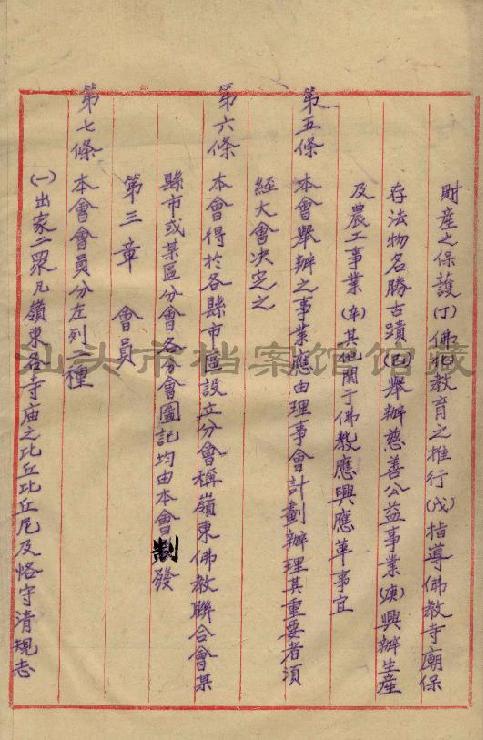 財產之保護(丁)佛化教育之推行(戊)指導佛教寺廟保
存法物名勝古蹟(己)舉辦慈善公益事業(庚)興辦生產
及農工事業(辛)其他關于佛教應興應革事宜
第五條 本會舉辦之事業應由理事會計劃辦理其重要者須
經大會決定之
第六條 本會得於各縣市區設立分會稱嶺東佛教聯合會某
縣市或某區分會各分會圖記均由本會制發
第三章 會員
第七條 本會會員分左列二種
(一)出家二眾凡嶺東各寺庙之比丘比丘尼及恪守清規志
汕头市档案馆馆藏